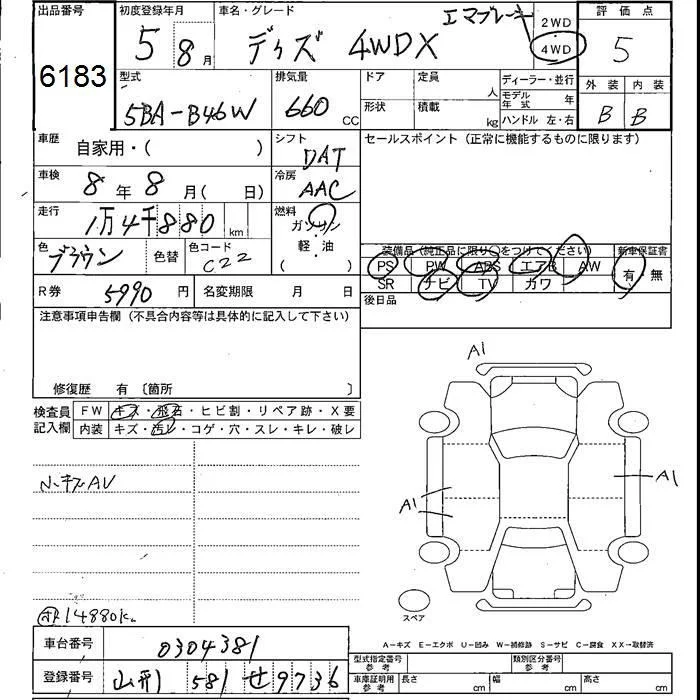 出品番号
6183
初度登録年月
5 8月
車名・グレード
デイズ 4WDX
エマブレーキ
2WD
4WD
評価点
5
外装 内装
B B
型式
5BA-B46W
排気量
660 CC
ドア
定員 人
形状
積載 kg
ディーラー・並行
モデル年式 年
ハンドル 左・右
車歴 自家用・( )
シフト DAT
セールスポイント (正常に機能するものに限ります)
車検 8年8月( 日)
冷房 AAC
走行 1万4千880 km
燃料 ガソリン
軽・油
( )
色 ブラウン 色替 色コード C22
装備品 (純正品に限り○をつけてください)
新車保証書
PS PW ABS エアB AW
有 無
SR ナビ TV カワ
R券 5990円 名変期限 月 日
後日品
注意事項申告欄 (不具合内容等は具体的に記入して下さい)
修復歴 有〔箇所 〕
検査員記入欄
FW キズ・飛石・ヒビ割・リペア跡・X要
内装 キズ・汚レ・コゲ・穴・スレ・キレ・破レ
小キズAV
A1
A1
A1
スペア
14880km
A-キズ E-エクボ U-凹み W-補修跡 S-サビ C-腐食 XX-取替済
車台番号 0304381
登録番号 山形 581 せ 9736
型式指定番号 参考
類別区分番号 参考
車庫証明用 参考
長さ cm
幅 cm
高さ cm